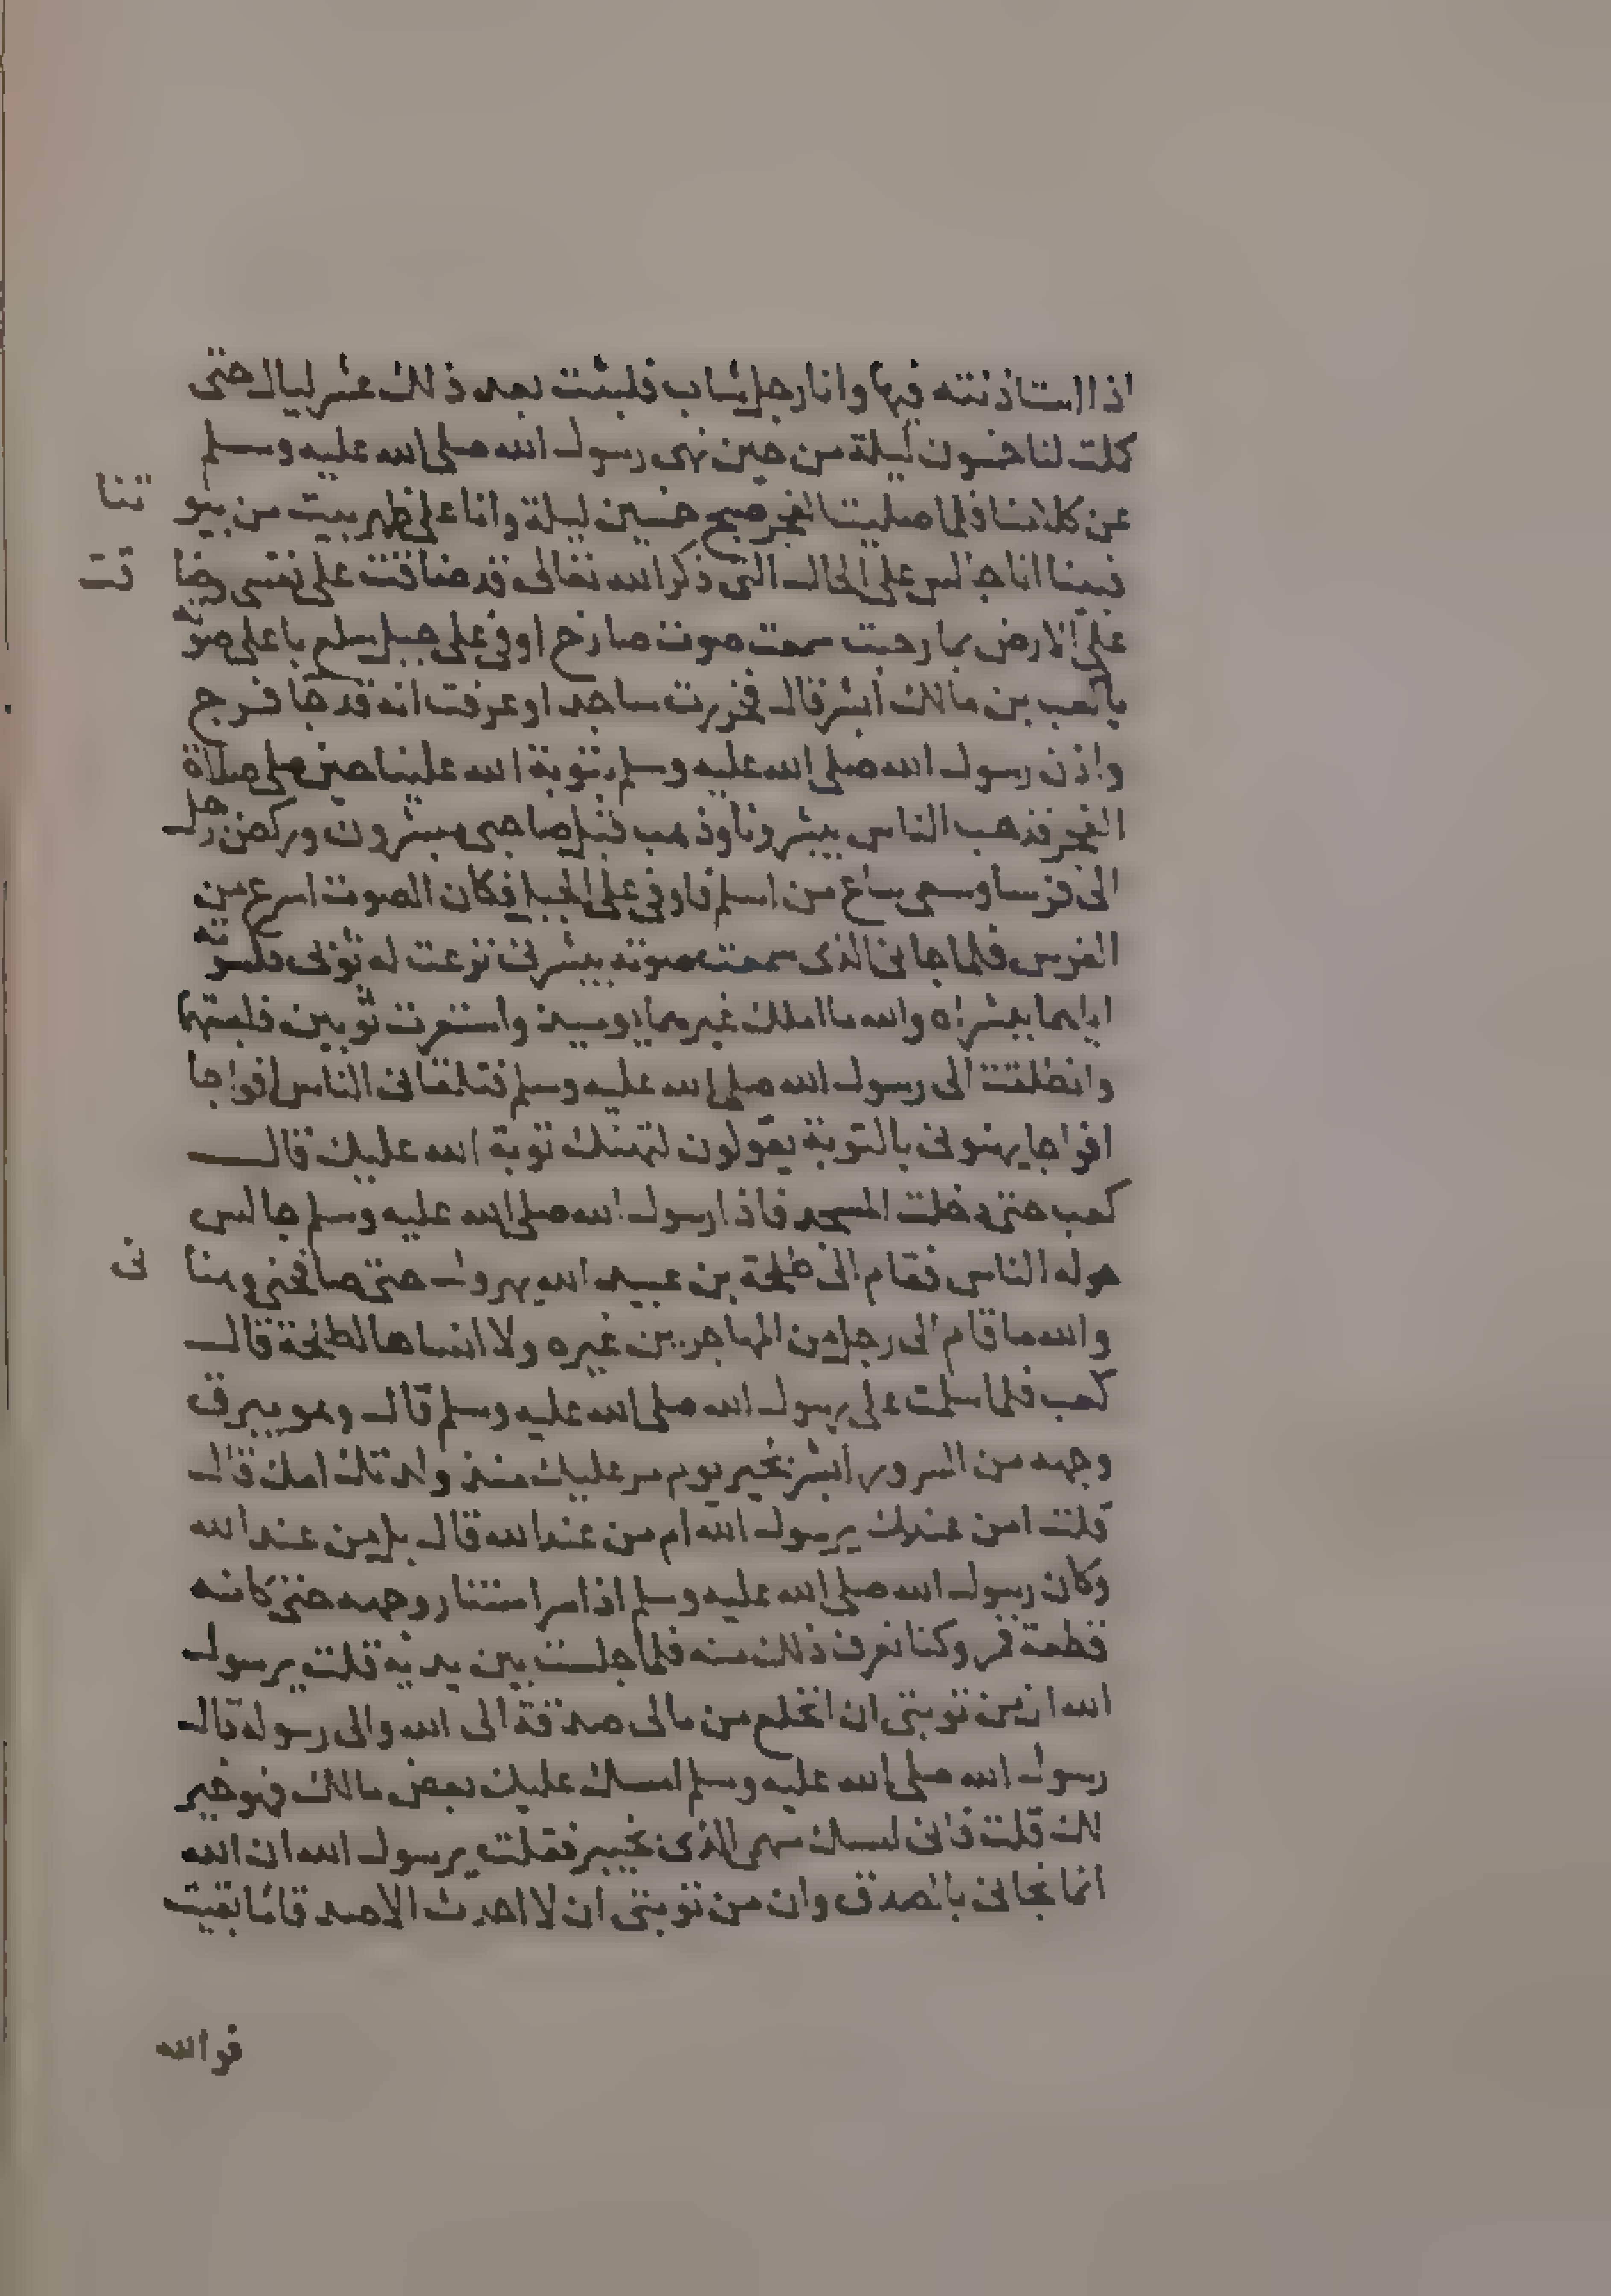 اذا استاذنته فيها وانا رجل شاب فلبثت بعد ذلك عشر ليال حتى
كملت لنا خمسون ليلة من حين نهى رسول الله صلى الله عليه وسلم
عن كلامنا فلما صليت الفجر صبح خمسين ليلة وانا على ظهر بيت من بيو تنا
فبينا انا جالس على الحال التى ذكر الله تعالى قد ضاقت على نفسى وضا قت
على الارض بما رحبت سمعت صوت صارخ اوفى على جبل سلع باعلى صوته
يا كعب بن مالك ابشر قال فخررت ساجدا وعرفت انه قد جا فرج
واذن رسول الله صلى الله عليه وسلم بتوبة الله علينا حين صلى صلاة
الفجر فذهب الناس يبشروننا وذهب قبل صاحبى مبشرون وركض رجل
الى فرسا وسعى ساع من اسلم فاوفى على الجبل فكان الصوت اسرع من
الفرس فلما جانى الذى سمعت صوته يبشرنى نزعت له ثوبى فكسوته
اياهما ببشراه والله ما املك غيرهما يوميذ واستعرت ثوبين فلبستهما
وانطلقت الى رسول الله صلى الله عليه وسلم فتلقانى الناس افواجا
افواجا يهنونى بالتوبة يقولون لتهنك توبة الله عليك قال
كعب حتى دخلت المسجد فاذا رسول الله صلى الله عليه وسلم جالس
حوله الناس فقام الى طلحة بن عبيد الله يهرول حتى صافحنى وهنا نى
والله ما قام الى رجل من المهاجرين غيره ولا انساها لطلحة قال
كعب فلما سلمت على رسول الله صلى الله عليه وسلم قال وهو يبرق
وجهه من السرور ابشر بخير يوم مر عليك منذ ولدتك امك قال
قلت امن عندك يرسول الله ام من عند الله قال بل من عند الله
وكان رسول الله صلى الله عليه وسلم اذا سر استنار وجهه حتى كانه
قطعة قمر وكنا نعرف ذلك منه فلما جلست بين يديه قلت يرسول
الله ان من توبتى ان انخلع من مالى صدقة الى الله والى رسوله قال
رسول الله صلى الله عليه وسلم امسك عليك بعض مالك فهو خير
لك قلت فانى امسك سهمى الذى بخيبر فقلت يرسول الله ان الله
انما نجانى بالصدق وان من توبتى ان لا احدث الا صدقا ما بقيت
فوالله